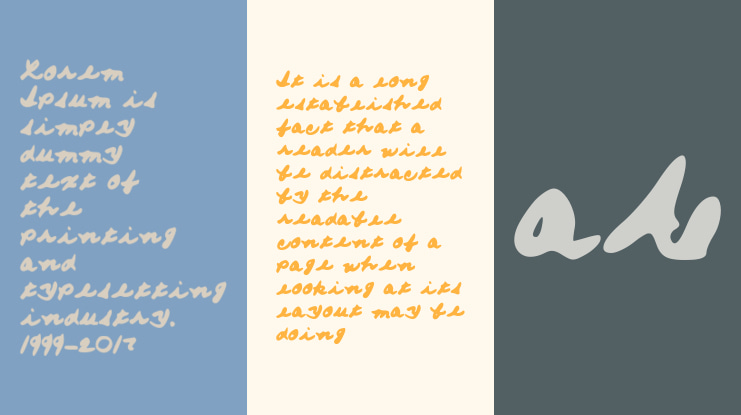 Lorem
Ipsum is
simply
dummy
text of
the
printing
and
typesetting
industry.
1999-2017
It is a long
established
fact that a
reader will
be distracted
by the
readable
content of a
page when
looking at its
layout may be
doing